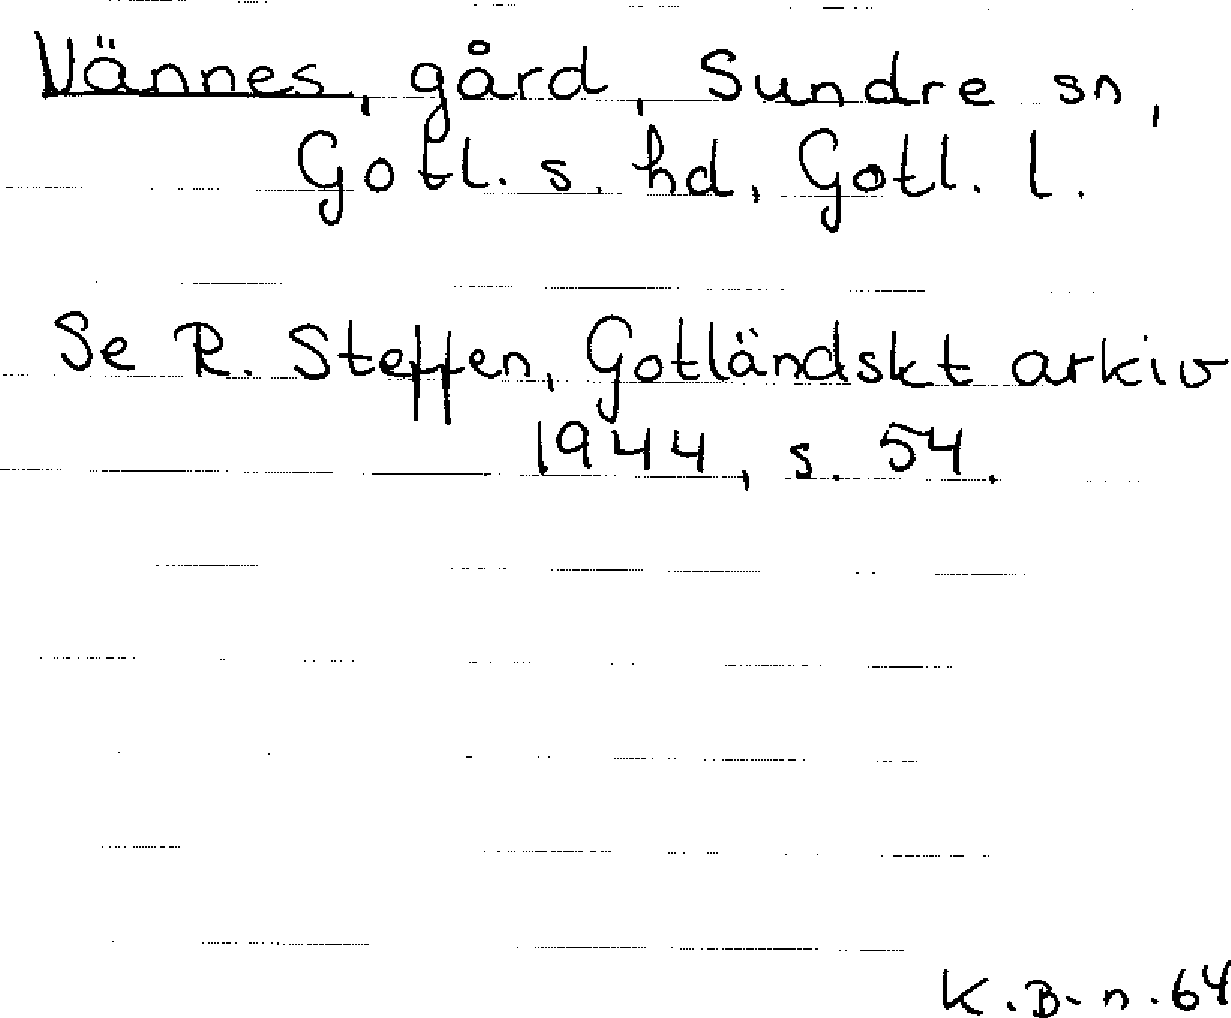 Vännes, gård, Sundre sn,
Gotl. s. hd, Gotl. l.
Se R. Steffen, Gotländskt arkiv
1944, s. 54.
K.B-n. 64